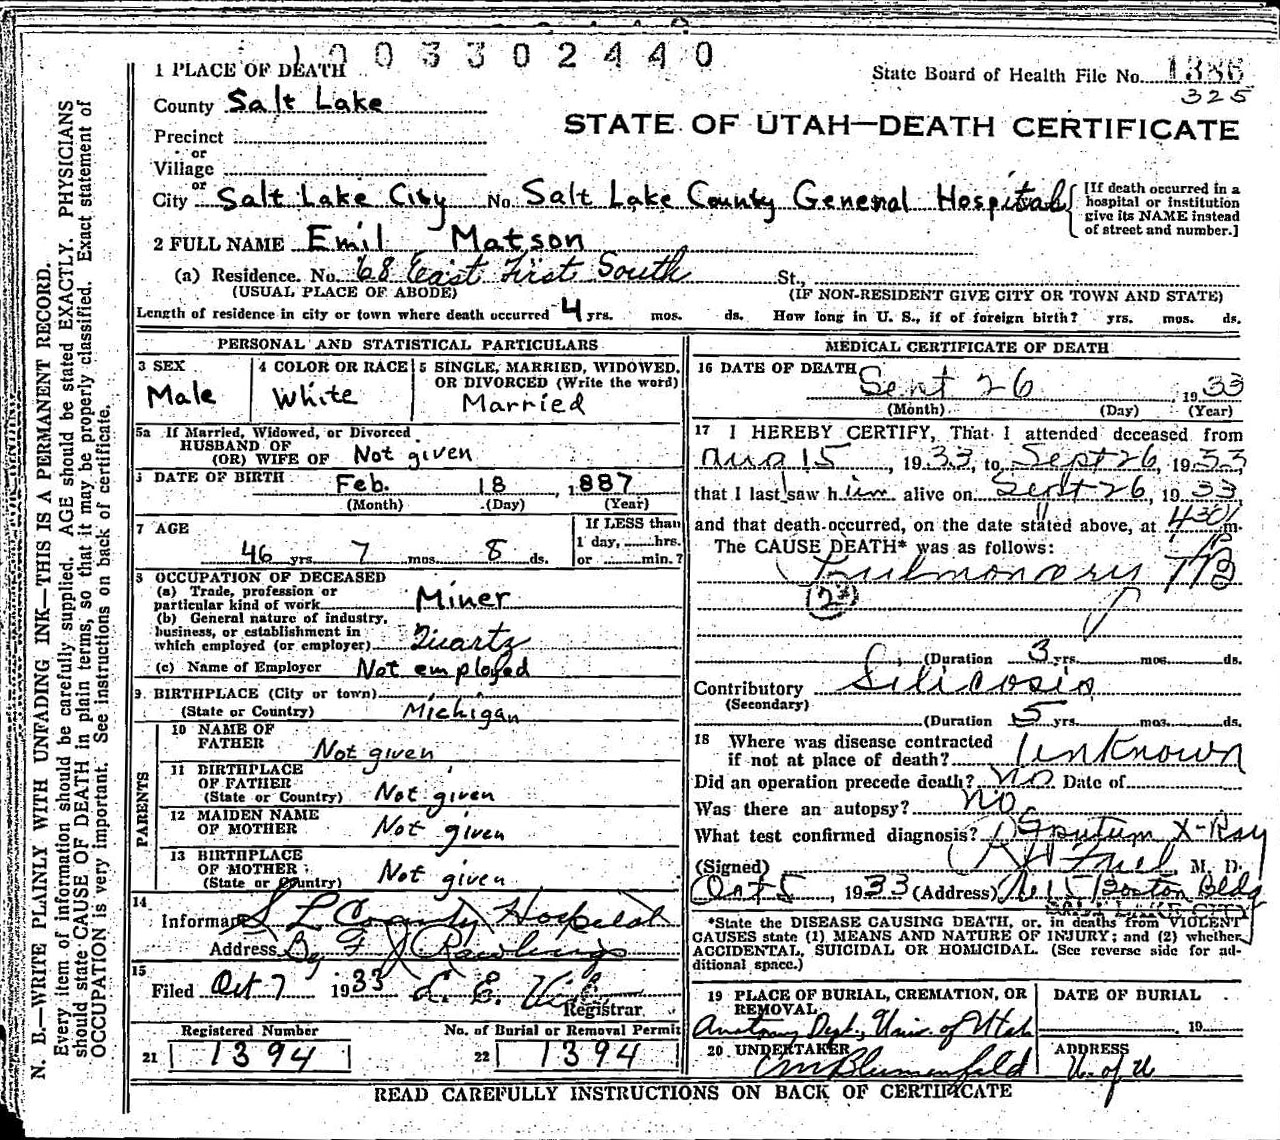 1 0 0 3 3 0 2 4 4 0
1 PLACE OF DEATH
State Board of Health File No. 1386
325
County Salt Lake
STATE OF UTAH—DEATH CERTIFICATE
Precinct
or
Village
or
City Salt Lake City No. Salt Lake County General Hospital
[If death occurred in a
hospital or institution
give its NAME instead
of street and number.]
2 FULL NAME Emil Matson
(a) Residence. No. 68 East First South St.,
(USUAL PLACE OF ABODE) (IF NON-RESIDENT GIVE CITY OR TOWN AND STATE)
Length of residence in city or town where death occurred 4 yrs. mos. ds. How long in U. S., if of foreign birth? yrs. mos. ds.
PERSONAL AND STATISTICAL PARTICULARS
3 SEX
Male
4 COLOR OR RACE
White
5 SINGLE, MARRIED, WIDOWED,
OR DIVORCED (Write the word)
Married
5a If Married, Widowed, or Divorced
HUSBAND OF
(OR) WIFE OF Not given
DATE OF BIRTH Feb. 18 1887
(Month) (Day) (Year)
7 AGE
46 yrs. 7 mos. 8 ds.
If LESS than
1 day, hrs.
or min.?
8 OCCUPATION OF DECEASED
(a) Trade, profession or
particular kind of work Miner
(b) General nature of industry,
business, or establishment in
which employed (or employer) Quartz
(c) Name of Employer Not employed
9. BIRTHPLACE (City or town)
(State or Country) Michigan
PARENTS
10 NAME OF
FATHER Not given
11 BIRTHPLACE
OF FATHER
(State or Country) Not given
12 MAIDEN NAME
OF MOTHER Not given
13 BIRTHPLACE
OF MOTHER
(State or Country) Not given
14
Informant S L County Hospital
Address By F J Rawlings
15
Filed Oct 7 1933 L. E.
Registrar
Registered Number
21 1394
No. of Burial or Removal Permit
22 1394
MEDICAL CERTIFICATE OF DEATH
16 DATE OF DEATH Sept 26, 1933
(Month) (Day) (Year)
17 I HEREBY CERTIFY, That I attended deceased from
Aug 15, 1933, to Sept 26, 1933
that I last saw him alive on Sept 26, 1933
and that death occurred, on the date stated above, at 430 P m.
The CAUSE DEATH* was as follows:
Pulmonary TB
23
(Duration 3 yrs. mos. ds.
Contributory Silicosis
(Secondary)
(Duration 5 yrs. mos. ds.
18 Where was disease contracted
if not at place of death? Unknown
Did an operation precede death? no Date of
Was there an autopsy? no
What test confirmed diagnosis? Sputum X-Ray
(Signed) M. D.
Oct 5, 1933 (Address) Boston Bldg
*State the DISEASE CAUSING DEATH, or, in deaths from VIOLENT
CAUSES state (1) MEANS AND NATURE OF INJURY; and (2) whether
ACCIDENTAL, SUICIDAL OR HOMICIDAL. (See reverse side for ad-
ditional space.)
19 PLACE OF BURIAL, CREMATION, OR
REMOVAL
Anatomy Dept., Univ. of Utah
DATE OF BURIAL
19
20 UNDERTAKER
CM Blumenfeld
ADDRESS
U. of U
READ CAREFULLY INSTRUCTIONS ON BACK OF CERTIFICATE
N. B.—WRITE PLAINLY WITH UNFADING INK—THIS IS A PERMANENT RECORD.
Every item of information should be carefully supplied. AGE should be stated EXACTLY. PHYSICIANS
should state CAUSE OF DEATH in plain terms, so that it may be properly classified. Exact statement of
OCCUPATION is very important. See instructions on back of certificate.